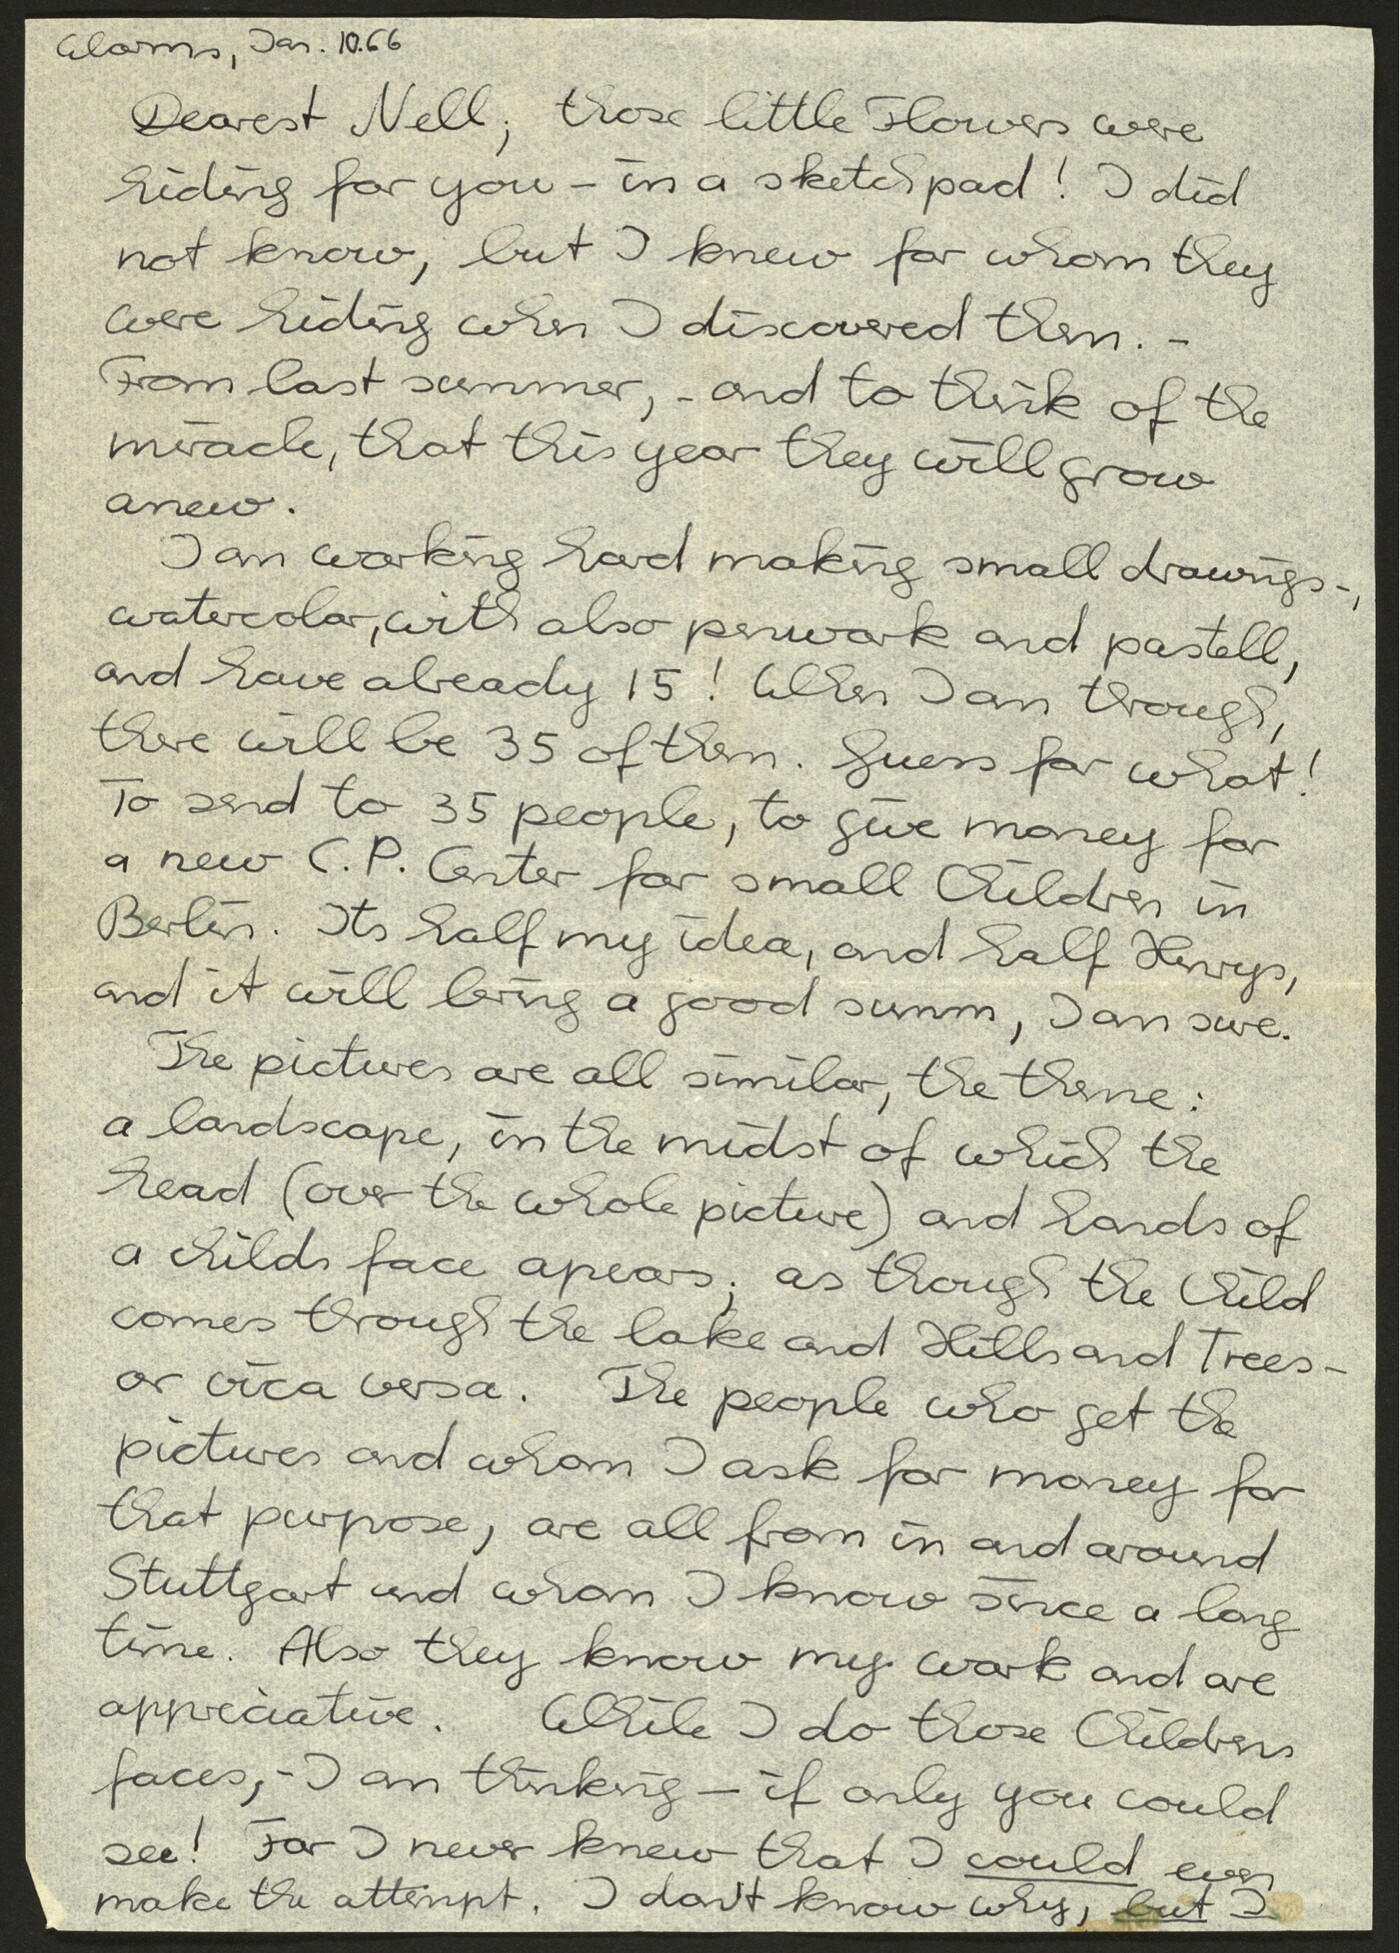 Worms, Jan. 10.66
Dearest Nell; those little Flowers were
hiding for you – in a sketch pad! I did
not know, but I knew for whom they
were hiding when I discovered them. –
From last summer, - and to think of the
miracle, that this year they will grow
anew.
I am working hard making small drawings -,
watercolor, with also penwork and pastell,
and have already 15! When I am through,
there will be 35 of them. Guess for what!
To send to 35 people, to give money for
a new C.P. Center for small Children in
Berlin. Its half my idea, and half Henrys,
and it will bring a good summ, I am sure.
The pictures are all similar, the theme:
a landscape, in the midst of which the
head (over the whole picture) and hands of
a childs face apears; as though the Child
comes through the lake and Hills and Trees –
or vica versa. The people who get the
pictures and whom I ask for money for
that purpose, are all from in and around
Stuttgart and whom I know since a long
time. Also they know my work and are
appreciative. While I do those Childrens
faces, - I am thinking – if only you could
see! For I never knew that I could even
make the attempt. I don't know why, but I